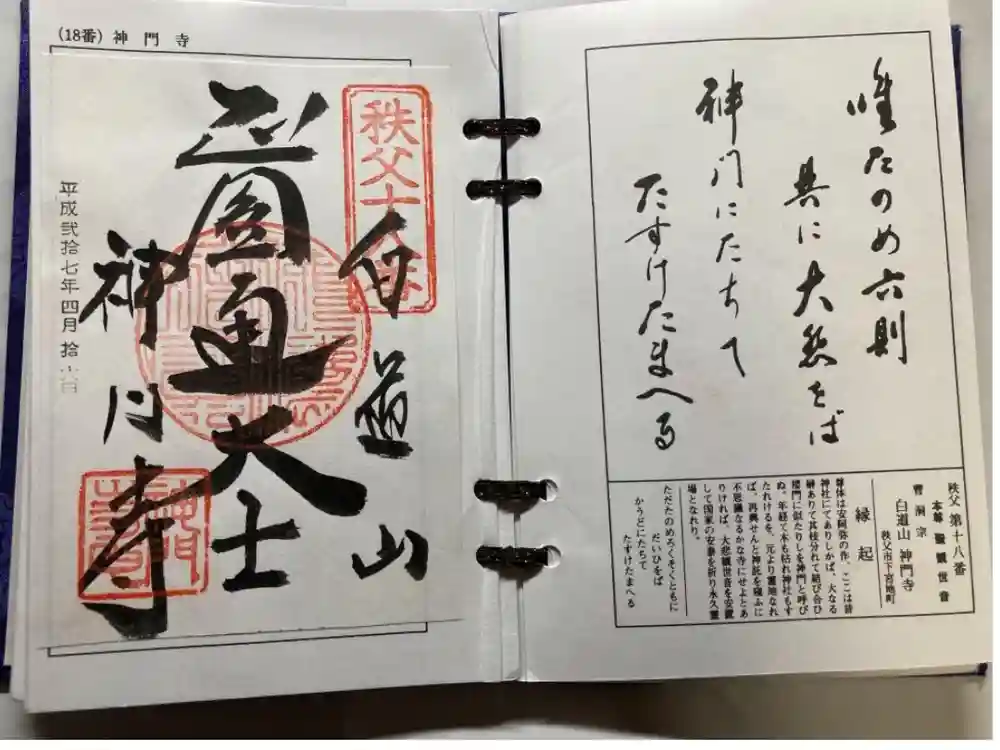 (18番) 神門寺
秩父十八番
白道山
圓通大士
神門寺
平成弐拾七年四月拾六日
唯たのめ六則
共に大悲をば
神門にたちて
たすけたまへる
秩父 第十八番
本尊 聖観世音
曹洞宗
白道山 神門寺
秩父市下宮地町
縁起
尊体は安阿弥の作、ここは昔
神社にてありしかば、大なる
榊ありて其枝分れて結び合ひ
楼門に似たりしを神門と呼び
ぬ。年経て木も枯れ神社もす
たれけるを、元より霊地なれ
ば、再興せんと神託を窺ふに
不思議なるかな寺にせよとあ
りければ、大悲観世音を安置
して国家の安泰を祈り永久霊
場となれり。
ただたのめろくそくともに
だいひをば
かうどにたちて
たすけたまへる